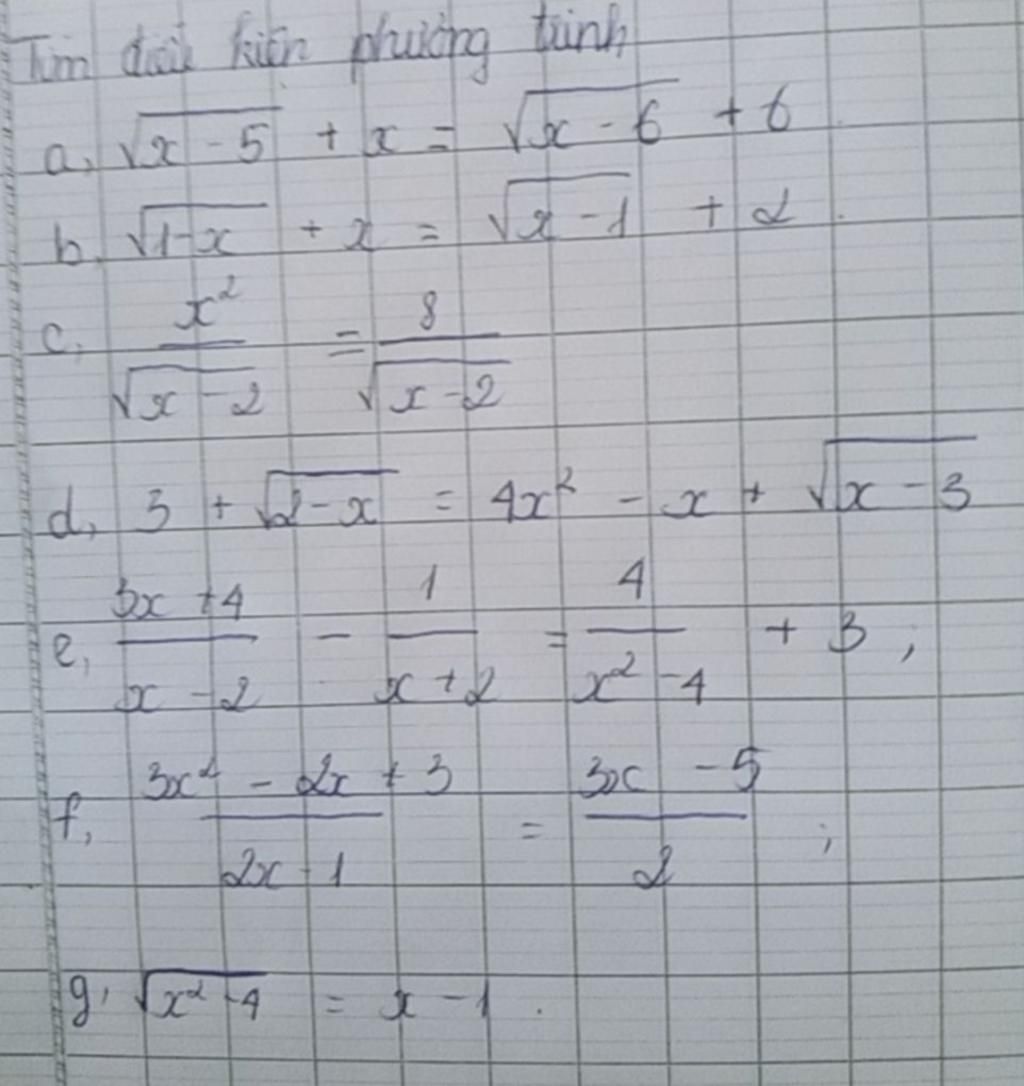 Tìm điều kiện phương trình
a, √(x - 5) + x = √(x - 6) + 6
b, √(1-x) + x = √(x - 1) + 2.
c, x²/√(x - 2) = 8/√(x - 2)
d, 3 + √(2 - x) = 4x² - x + √(x - 3)
e, (3x + 4)/(x - 2) - 1/(x + 2) = 4/(x² - 4) + 3 ;
f, (3x² - 2x + 3)/(2x - 1) = (3x - 5)/2 ;
g, √(x² - 4) = x - 1 .